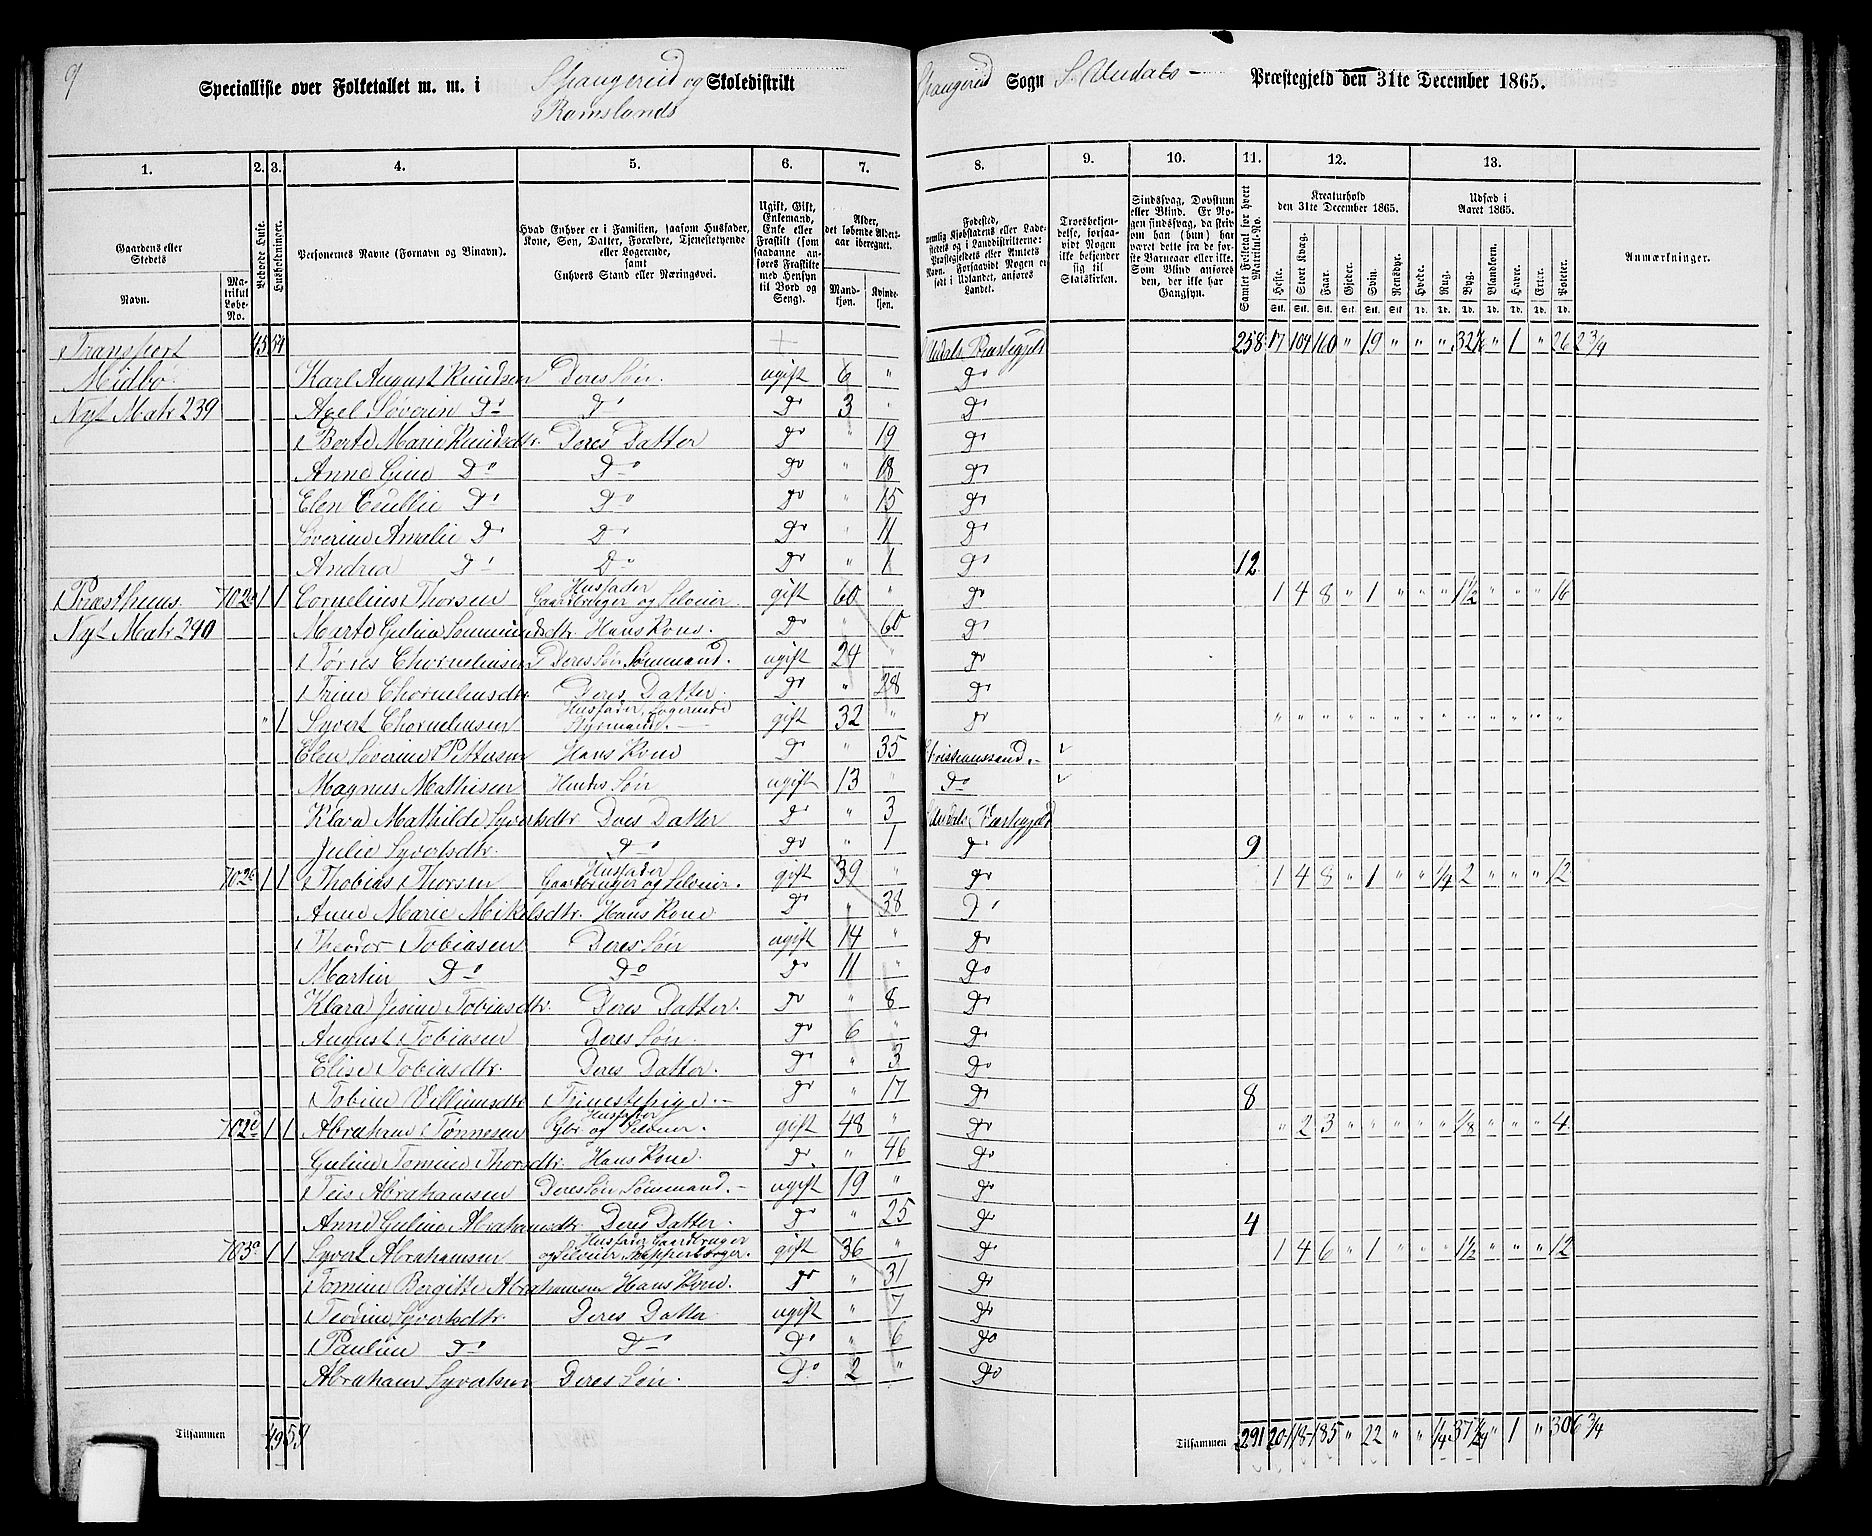 9
Specialliste over Folketallet m. m. i Spangereid og Ramslands Skoledistrikt Spangereid Sogn S. Undals Præstegjeld den 31te December 1865.
1. 2. 3. 4. 5. 6. 7. 8. 9. 10. 11. 12. 13.
Gaardens eller Stedets Navn. Matrikul Løbe-No.
Beboede Huse.
Husholdninger.
Personernes Navne (Fornavn og Binavn).
Hvad Enhver er i Familien, saasom Husfader, Kone, Søn, Datter, Forældre, Tjenestetyende eller Logerende, samt Enhvers Stand eller Næringsvei.
Ugift, Gift, Enkemand, Enke eller Fraskilt (som saadanne anføres Fraskilte med Hensyn til Bord og Seng).
Alder, det løbende Aldersaar iberegnet.
Mandkjøn. Kvindekjøn.
Fødested, nemlig Kjøbstædens eller Ladestedets og i Landdistrikterne: Præstegjeldets eller Amtets Navn. Forsaavidt Nogen er født i Udlandet, anføres Landet.
Troesbekjendelse, forsaavidt Nogen ikke bekjender sig til Statskirken.
Sindssvag, Døvstum eller Blind. Er Nogen sindssvag, da skriv om han (hun) har været dette fra de første Barneaar eller ikke. Som Blind anføres den, der ikke har Gangsyn.
Samlet Folketal for hvert Matrikul-No.
Kreaturhold den 31te December 1865.
Heste. Stort Kvæg. Faar. Gjeder. Svin. Rensdyr.
Udsæd i Aaret 1865.
Hvede. Rug. Byg. Blandkorn. Havre. Erter. Poteter.
Anmærkninger.
Transport 45 54 Undals Præstegjeld 258 17 104 160 " 19 " " " 32 1/6 " 1 " 262 3/4
Midbø Karl August Knudsen Deres Søn. ugift 6 " Do
Nyt Matr 239 Axel Søverin Do Do Do 3 " Do
Berte Marie Knudsdtr. Deres Datter Do " 19 Do
Anne Gine Do Do Do " 18 Do
Elen Cecilie Do Do Do " 15 Do
Søverine Amalie Do Do Do " 11 Do
Andrea Do Do Do " 1 Do 12
Præsthuus 702a 1 1 Cornelius Thorsen Husfader Gaardbruger og Selveier. gift 60 " Do 1 4 8 " 1 " " " 1 1/2 " " " 16
Nyt Matr 240 Marte Guline Sommundsdtr. Hans Kone. Do " 60 Do
Tønnes Chorneliusen Deres Søn Sømmand. ugift 24 Do
Trine Chorneliusdtr Deres Datter. Do " 28 Do
" 1 Syvert Chorneliusen Husfader, Logerende Styrmand. gift 32 " Do " " " " " " " " " " " " "
Elen Søverine Pettersen Hans Kone Do " 35 Christianssand.
Magnus Mathisen Hendes Søn ugift 13 " Do
Klara Mathilde Syvertsdtr Deres Datter Do " 3 Undals Præstegjeld
Julie Syvertsdtr. Do Do " 1 Do 9
702b 1 1 Thobias Thorsen Husfader Gaardbruger og Selveier. gift 39 " Do 1 4 8 " 1 " " 1/4 2 " " " 12
Anne Marie Mikelsdtr. Hans Kone Do " 38 Do
Theodor Tobiasen Deres Søn ugift 14 " Do
Martin Do Do Do 11 " Do
Klara Jesine Tobiasdtr. Deres Datter. Do " 8 Do
August Tobiasen Deres Søn. Do 6 " Do
Elise Tobiasdtr. Deres Datter. Do " 3 Do
Tobine Villiumsdtr Tjenestepige. Do " 17 Do 8
702d 1 1 Abraham Tønnesen Husfader Gbr og Selveier. gift 48 " Do " 2 3 " " " " " 1/8 " " " 4
Guline Tomine Thorsdtr. Hans Kone. Do " 46 Do
Teis Abrahamsen Deres Søn Sømmand. ugift 19 " Do
Anne Guline Abrahamsdtr. Deres Datter. Do " 25 Do 4
703a 1 1 Syvert Abrahamsen Husfader Gaardbruger og Selveier gift 36 " Do 1 4 6 " 1 " " " 1 1/2 " " " 12
Tomine Bergitte Abrahamsen Hans Kone. Do " 31 Do
Teorine Syvertsdtr. Deres Datter ugift " 7 Do
Pauline Do Do Do " 6 Do
Abraham Syvertsen Deres Søn. Do 2 " Do
Tilsammen 49 59 Tilsammen 291 20 118 185 " 22 " " 1/4 37 " 1 " 306 3/4